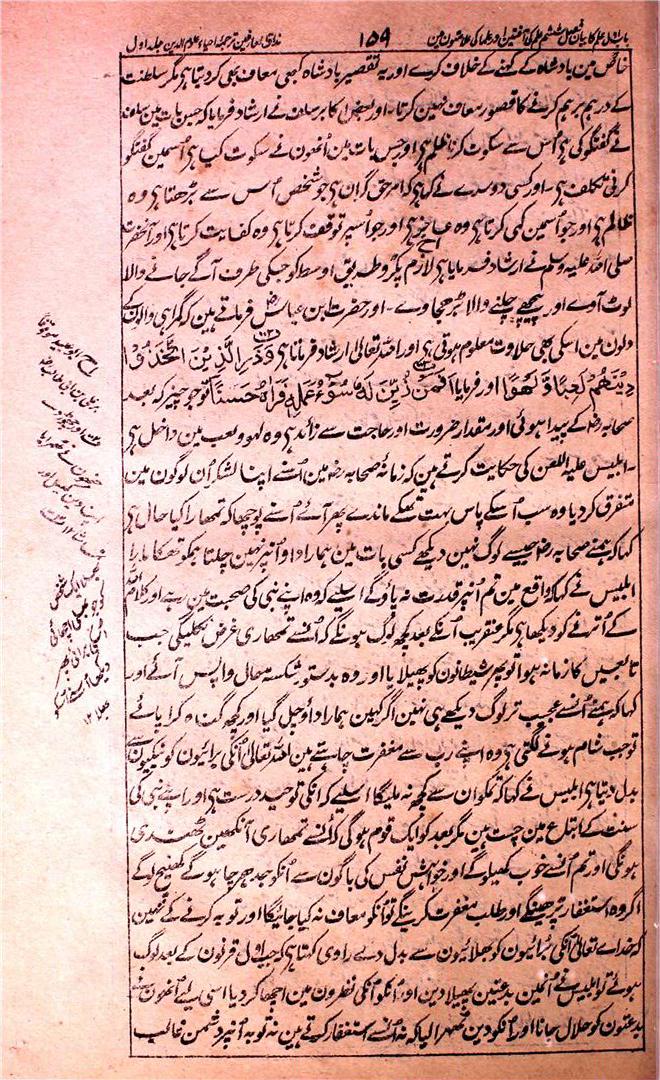 باب اول علم کا بیان فصل ششم علم کی آفتین اور علما کی علامتون مین
۱۵۹
مذاق العارفین ترجمہ احیاء علوم الدین جلد اول
خاص مین بادشاہ کے کہنے کے خلاف کرے اور یہ تقصیر بادشاہ کبھی معاف بھی کر دیتا ہی مگر سلطنت
کے درہم برہم کرنے کا قصور معاف نہین کرتا۔ اور بعض اکابر سلف نے ارشاد فرمایا کہ جس بات مین سلف
نے گفتگو کی ہی اُس سے سکوت کرنا ظلم ہی اور جس بات مین اُنھون نے سکوت کیا ہی اُسمین گفتگو
کرنی تکلف ہی۔ اور کسی دوسرے نے کہا ہی کہ امر حق گران ہی جو شخص اُس سے بڑھتا ہی وہ
ظالم ہی اور جو اُسمین کمی کرتا ہی وہ عاجز ہی اور جو اُسپر توقف کرتا ہی وہ کفایت کرتا ہی اور آنحضرت
صلی اللہ علیہ وسلم نے ارشاد فرمایا ہی لازم پکڑو طریق اوسط کو جسکی طرف آگے جانے والا
لوٹ آوے اور پیچھے چلنے والا بڑھ جاوے۔ اور حضرت ابن عباس رض فرماتے ہین کہ گمراہی والون کے
دلون مین اسکی بھی حلاوت معلوم ہوتی ہی اور اللہ تعالی ارشاد فرماتا ہی وَذَرِ الَّذِیْنَ اتَّخَذُوْا
دِیْنَهُمْ لَعِبًا وَّ لَهْوًا اور فرمایا اَفَمَنْ زُیِّنَ لَهٗ سُوْٓءُ عَمَلِهٖ فَرَاٰهُ حَسَنًا تو جو چیز کہ بعد
صحابہ رض کے پیدا ہوئی اور مقدار ضرورت اور حاجت سے زائد ہی وہ لہو و لعب مین داخل ہی
۔ابلیس علیہ اللعن کی حکایت کرتے ہین کہ زمانۂ صحابہ رض مین اُسنے اپنا لشکر اُن لوگون مین
متفرق کر دیا وہ سب اُسکے پاس بہت تھکے ماندے پھر آئے اُسنے پوچھا کہ تمھارا کیا حال ہی
کہا کہ ہمنے صحابہ رض جیسے لوگ نہین دیکھے کسی بات مین ہمارا داو اُنپر نہین چلتا ہمکو تھکا مارا
ابلیس نے کہا کہ واقع مین تم اُنپر قدرت نہ پاؤ گے اسلیے کہ وہ اپنے نبی کی صحبت مین رہے اور کلام اللہ
کے اُترنے کو دیکھا ہی مگر عنقریب اُنکے بعد کچھ لوگ ہونگے کہ اُنسے تمھاری غرض نکلیگی جب
تابعین کا زمانہ ہوا تو پھر شیطانون کو پھیلایا اور وہ بدستور شکستہ حال واپس آئے اور
کہا کہ ہمنے اُنسے عجیب تر لوگ دیکھے ہی نہین اگر کہین ہمارا داؤ چل گیا اور کچھ گناہ کرا پائے
تو جب شام ہونے لگتی ہی وہ اپنے رب سے مغفرت چاہتے ہین اللہ تعالی اُنکی برائیون کو نیکیون سے
بدل دیتا ہی ابلیس نے کہا کہ تمکو ان سے کچھ نہ ملیگا اسلیے کہ انکی توحید درست ہی اور اپنے نبی کی
سنت کے اتباع مین چست ہین مگر بعد کو ایک قوم ہوگی کہ اُنسے تمھاری آنکھین ٹھنڈی
ہونگی اور تم اُنسے خوب کھیلو گے اور خواہش نفس کی باگون سے اُنکو جدھر چاہو گے کھینچ لو گے
اگر وہ استغفار پڑھینگے اور طلب مغفرت کرینگے تو اُنکو معاف نہ کیا جائیگا اور توبہ کرنے کے نہین
کہ خداے تعالی اُنکی برائیون کو بھلائیون سے بدل دے راوی کہتا ہی کہ جب اول قرنون کے بعد لوگ
ہوئے تو ابلیس نے اُنمین بدعتین پھیلا دین اور اُنکو اُنکی نظرون مین اچھا کر دیا اسی لیے اُنھون نے
بدعتون کو حلال جانا اور اُنکو دین ٹھہرا لیا کہ نہ اُنسے استغفار کرتے ہین نہ توبہ اُنپر دشمن غالب